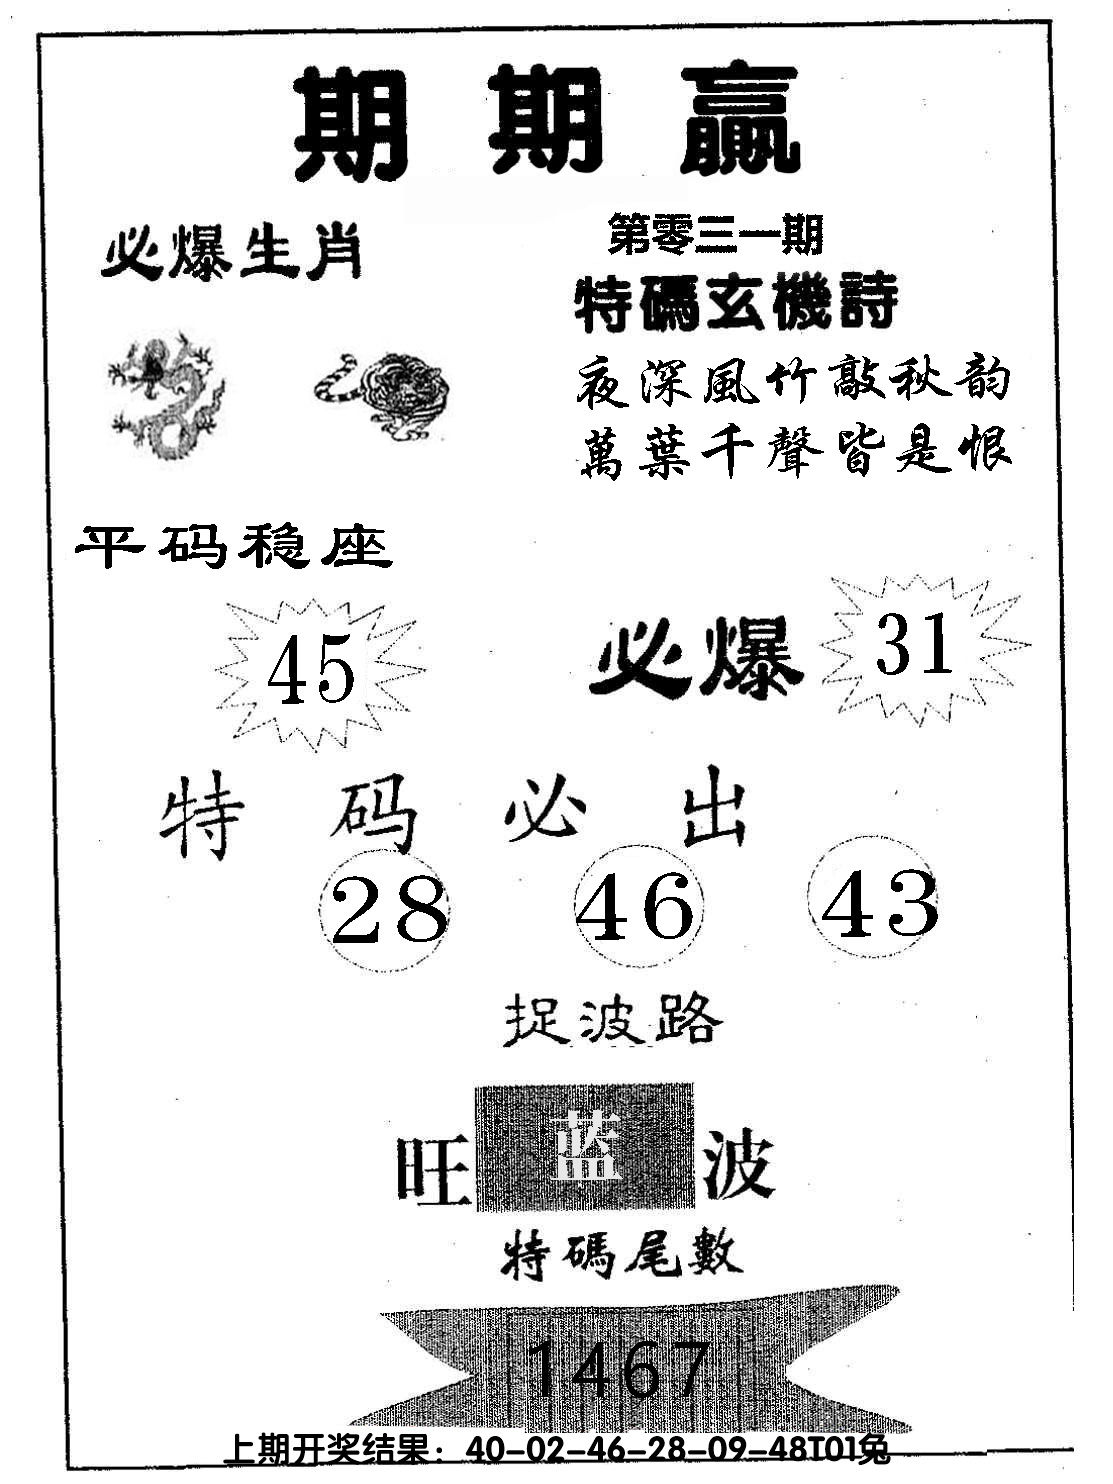 期期赢
必爆生肖
第零三一期
特碼玄機詩
夜深風竹敲秋韵
萬葉千聲皆是恨
平码稳座
45
必爆 31
特码必出
28 46 43
捉波路
旺蓝波
特碼尾數
1467
上期开奖结果：40-02-46-28-09-48T01兔